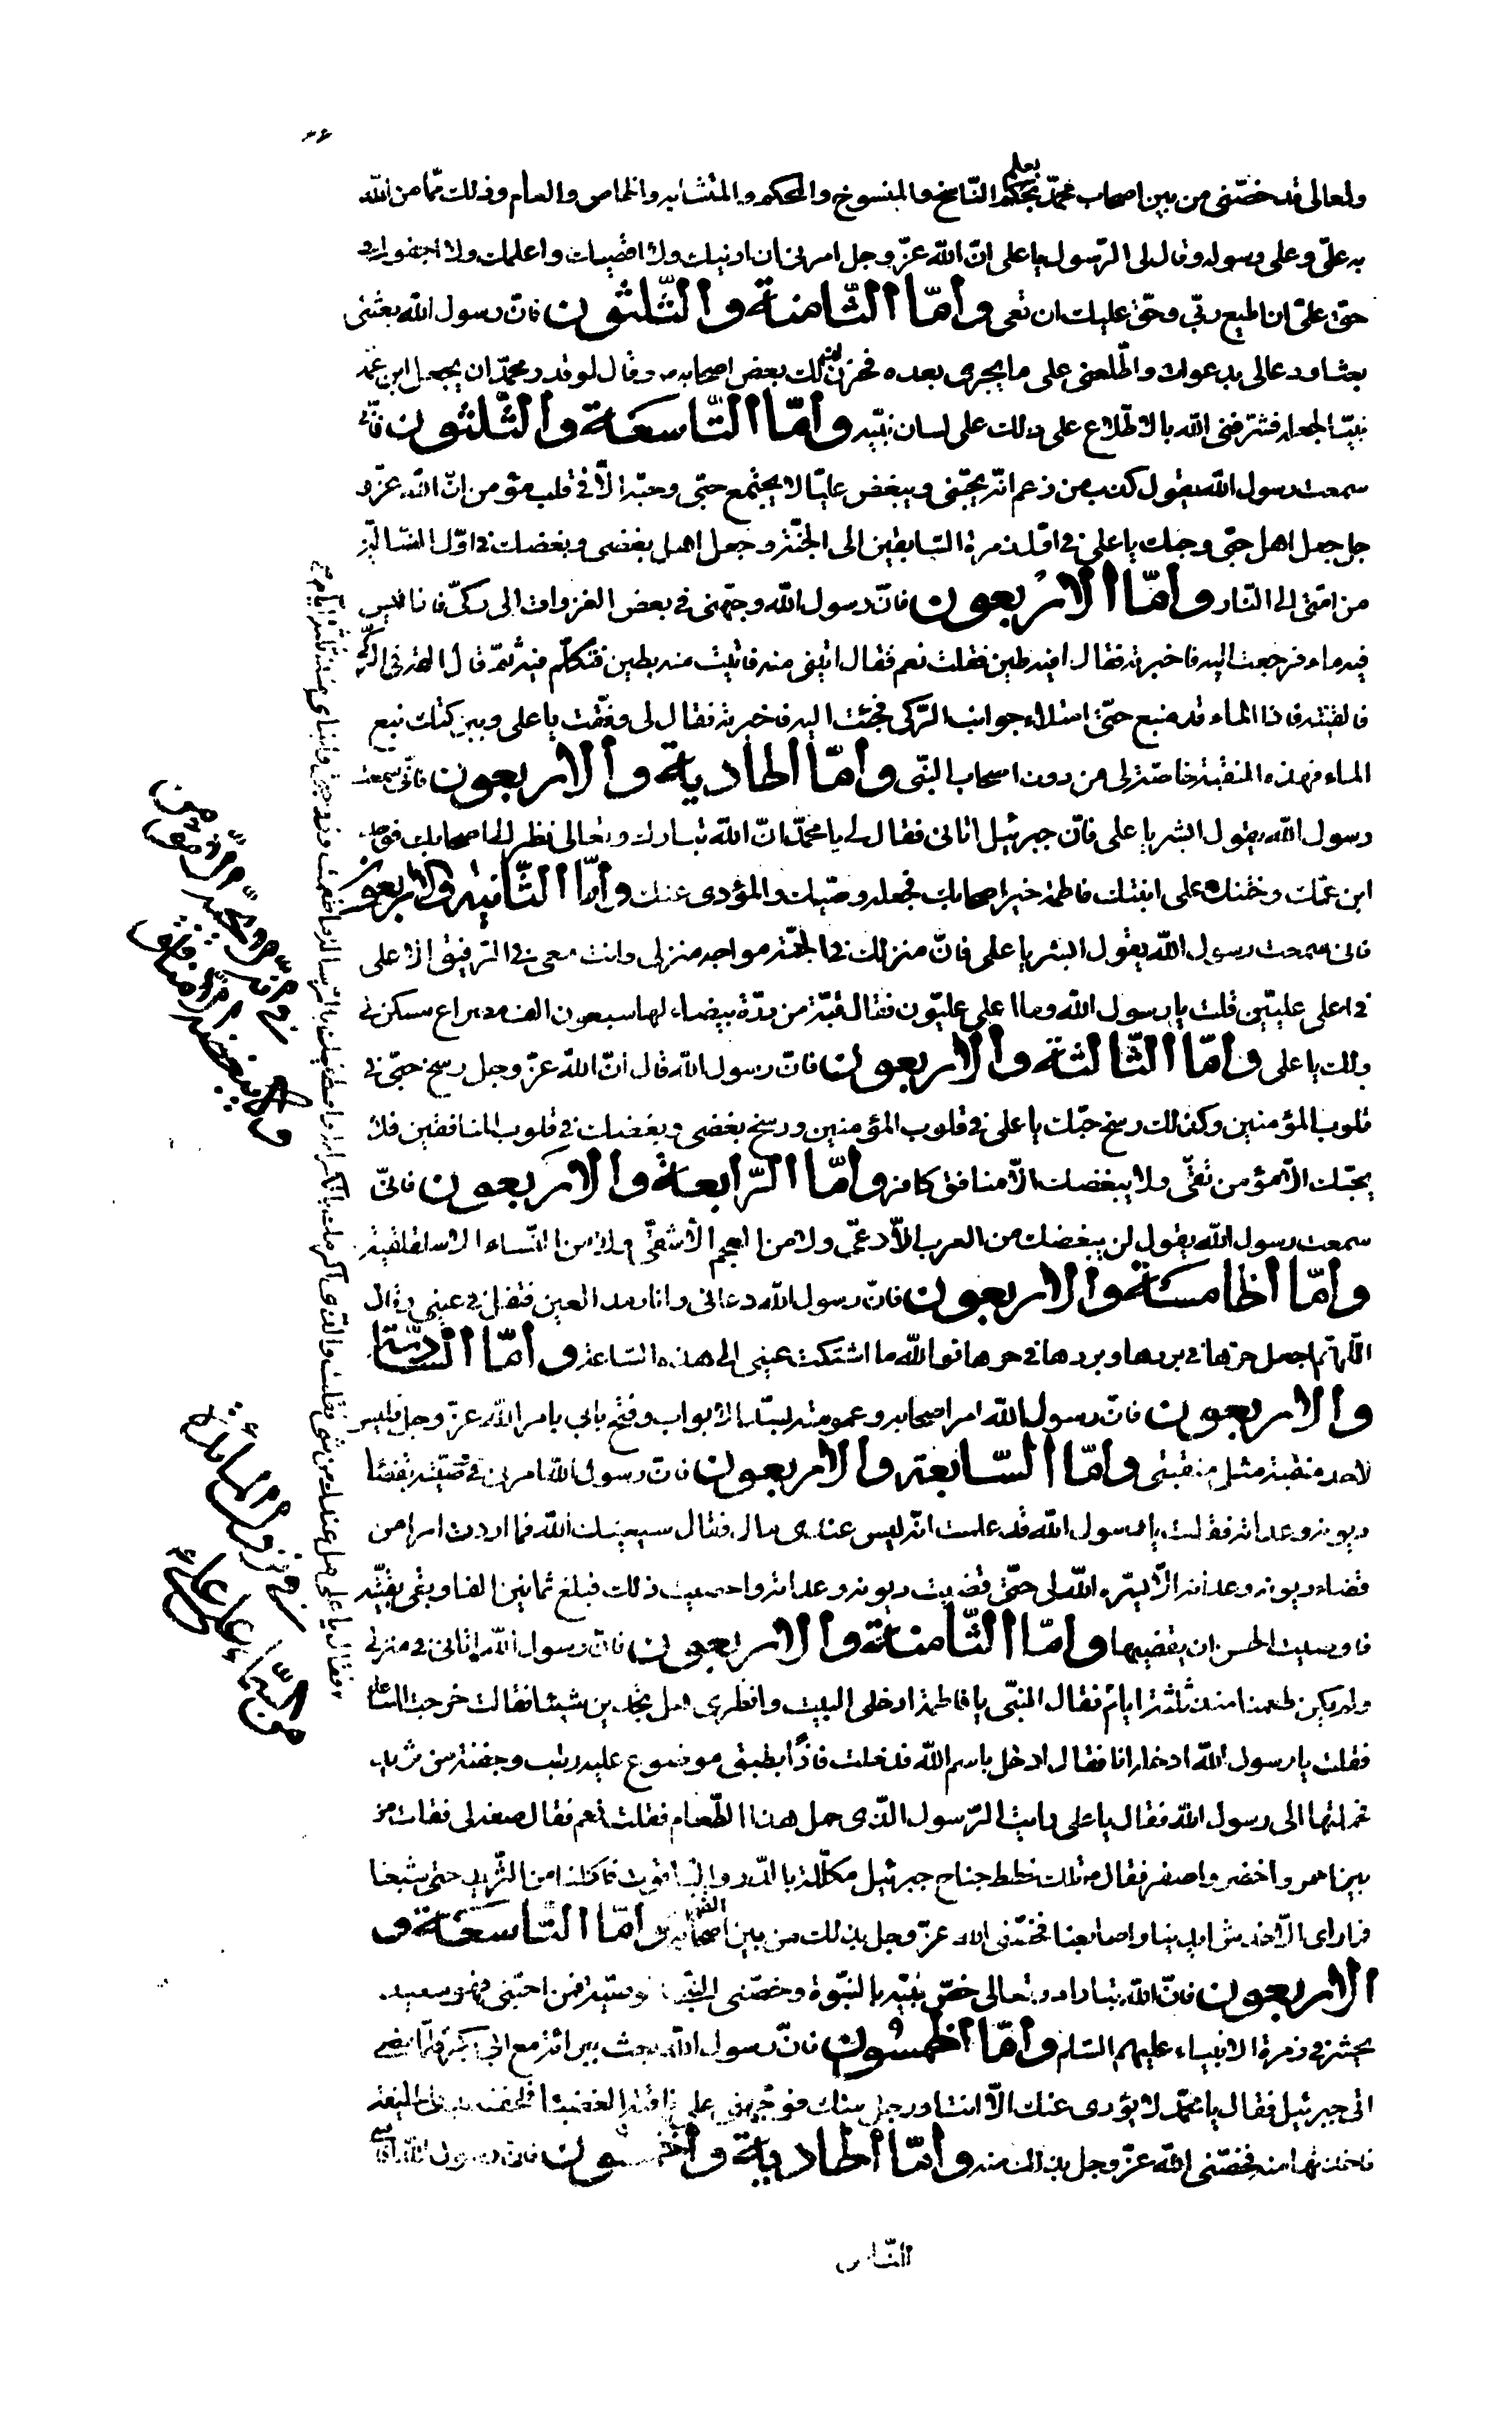 وتعالى قد خصّنى من بين اصحاب محمّد بعلم النّاسخ والمنسوخ والمحكم والمتشابه والخاص والعام وذلك ممّا من اللّه
به علىّ وعلى رسوله وقال لى الرّسول يا على انّ اللّه عزّ وجل امرنى ان ادنيك ولا اقصيك واعلمك ولا اجفوك و
حقّ علىّ ان اطيع ربّى وحقّ عليك ان تعى وامّا الثّامنة والثّلثون فانّ رسول اللّه بعثنى
بعثا ودعا لى بدعوات واطّلعنى على ما يجرى بعده فحزن لذلك بعض اصحابه وقال لو قدر محمّد ان يجعل ابن عمّه
نبيّا لجعله فشرّفنى اللّه بالاطّلاع على ذلك على لسان نبيّه وامّا التّاسعة والثّلثون فانّى
سمعت رسول اللّه يقول كذب من زعم انّه يحبّنى ويبغض عليّا لا يجتمع حبّى وحبّه الّا فى قلب مؤمن انّ اللّه عزّ و
جل جعل اهل حبّى وحبك يا على فى اوّل زمرة السّابقين الى الجنّة وجعل اهل بغضى وبغضك فى اوّل الضّالّين
من امّتى الى النّار وامّا الاربعون فانّ رسول اللّه وجّهنى فى بعض الغزوات الى ركىّ فاذا ليس
فيه ماء فرجعت اليه فاخبرته فقال افيه طين فقلت نعم فقال ائتنى منه فاتيت منه بطين فتكلّم فيه ثمّ قال القه فى الركىّ
فالقيته فاذا الماء قد منبع حتّى امتلاء جوانب الرّكى فجئت اليه فاخبرته فقال لى وفّقت يا على وببركتك نبع
الماء فهذه المنقبة خاصّة لى من دون اصحاب النبّى وامّا الحادية والاربعون فانّى سمعت
رسول اللّه يقول ابشر يا على فانّ جبرئيل اتانى فقال لى يا محمّد انّ اللّه تبارك وتعالى نظر الى اصحابك فوجد
ابن عمّك وختنك على ابنتك فاطمة خير اصحابك فجعله وصيّك والمؤدى عنك وامّا الثّانية والاربعون
فانى سمعت رسول اللّه يقول ابشر يا على فانّ منزلك فى الجنّة مواجه منزلى وانت معى فى الرّفيق الاعلى
فى اعلى علّيّين قلت يا رسول اللّه وما اعلى علّيّون فقال قبّة من درّة بيضاء لها سبعون الف مصراع مسكن لى
ولك يا على وامّا الثّالثة والاربعون فانّ رسول اللّه قال انّ اللّه عزّ وجل رسخ حبّى فى
قلوب المؤمنين وكذلك رسخ حبّك يا على فى قلوب المؤمنين ورسخ بغضى وبغضك فى قلوب المنافقين فلا
يحبّك الّا مؤمن تقىّ ولا يبغضك الّا منافق كافر وامّا الرّابعة والاربعون فانّى
سمعت رسول اللّه يقول لن يبغضك من العرب الّا دعىّ ولا من العجم الّا شقىّ ولا من النّساء الّا سلقلقية
وامّا الخامسة والاربعون فانّ رسول اللّه دعانى وانا رمد العين فتفل فى عينى وقال
اللّهمّ اجعل حرّها فى بردها وبردها فى حرها فواللّه ما اشتكت عينى الى هذه السّاعة وامّا السّادسة
والاربعون فانّ رسول اللّه امر اصحابه وعمومته بسدّ الابواب وفتح بابى بامر اللّه عزّ وجل فليس
لاحد منقبة مثل منقبتى وامّا السّابعة والاربعون فانّ رسول اللّه امرنى فى وصيّته بقضاء
ديونه وعداته فقلت يا رسول اللّه قد علمت انّه ليس عندى مال فقال سيعينك اللّه فما اردت امرا من
قضاء ديونه وعداته الّا يسّره اللّه لى حتّى قضيت ديونه وعداته واحصيت ذلك فبلغ ثمانين الفا وبقى بقيّة
فاوصيت الحسن ان يقضيها وامّا الثّامنة والاربعون فانّ رسول اللّه اتانى فى منزلى
ولم يكن طعمنا منذ ثلثة ايام فقال النبّى يا فاطمة ادخلى البيت وانظرى هل تجدين شيئا فقالت خرجت السّاعة
فقلت يا رسول اللّه ادخله انا فقال ادخل باسم اللّه فدخلت فاذا بطبق موضوع عليه رطب وجفنة من ثريد
فحملتها الى رسول اللّه فقال يا على رايت الرّسول الّذى حمل هذا الطّعام فقلت نعم فقال صفه لى فقلت من
بين احمر واخضر واصفر فقال تلك خطط جناح جبرئيل مكلّلة بالدّر والياقوت فاكلنا من الثّريد حتى شبعنا
فما راى الّا خدش ايدينا واصابعنا فخصّنى اللّه عزّ وجل بذلك من بين اصحابه وامّا التّاسعة و
الاربعون فانّ اللّه تبارك وتعالى خصّ نبيّه بالنبّوة وخصّنى النبّى بالوصيّة فمن احبّنى فهو سعيد
يحشر فى زمرة الانبياء عليهم السّلم وامّا الخمسون فانّ رسول اللّه بعث ببرائة مع ابى بكر فلمّا مضى
اتى جبرئيل فقال يا محمّد لا يؤدى عنك الّا انت او رجل منك فوجّهنى على ناقته الغضباء فلحقته بذى الحليفة
فاخذتها منه فخصّنى اللّه عزّ وجل بذلك منه وامّا الحادية والخمسون فانّ رسول اللّه اقامنى
النّاس
فى نزول المائدة
من السّماء على علىّ ع